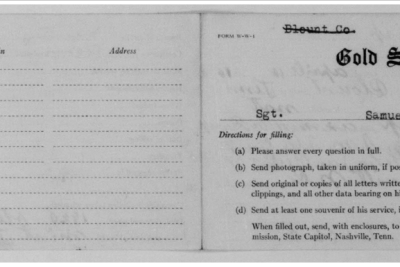 n
Address
FORM W-W-1
Blount Co.
Gold S
Sgt. Samue
Directions for filling:
(a) Please answer every question in full.
(b) Send photograph, taken in uniform, if po
(c) Send original or copies of all letters writte
clippings, and all other data bearing on hi
(d) Send at least one souvenir of his service, i
When filled out, send, with enclosures, to
mission, State Capitol, Nashville, Tenn.